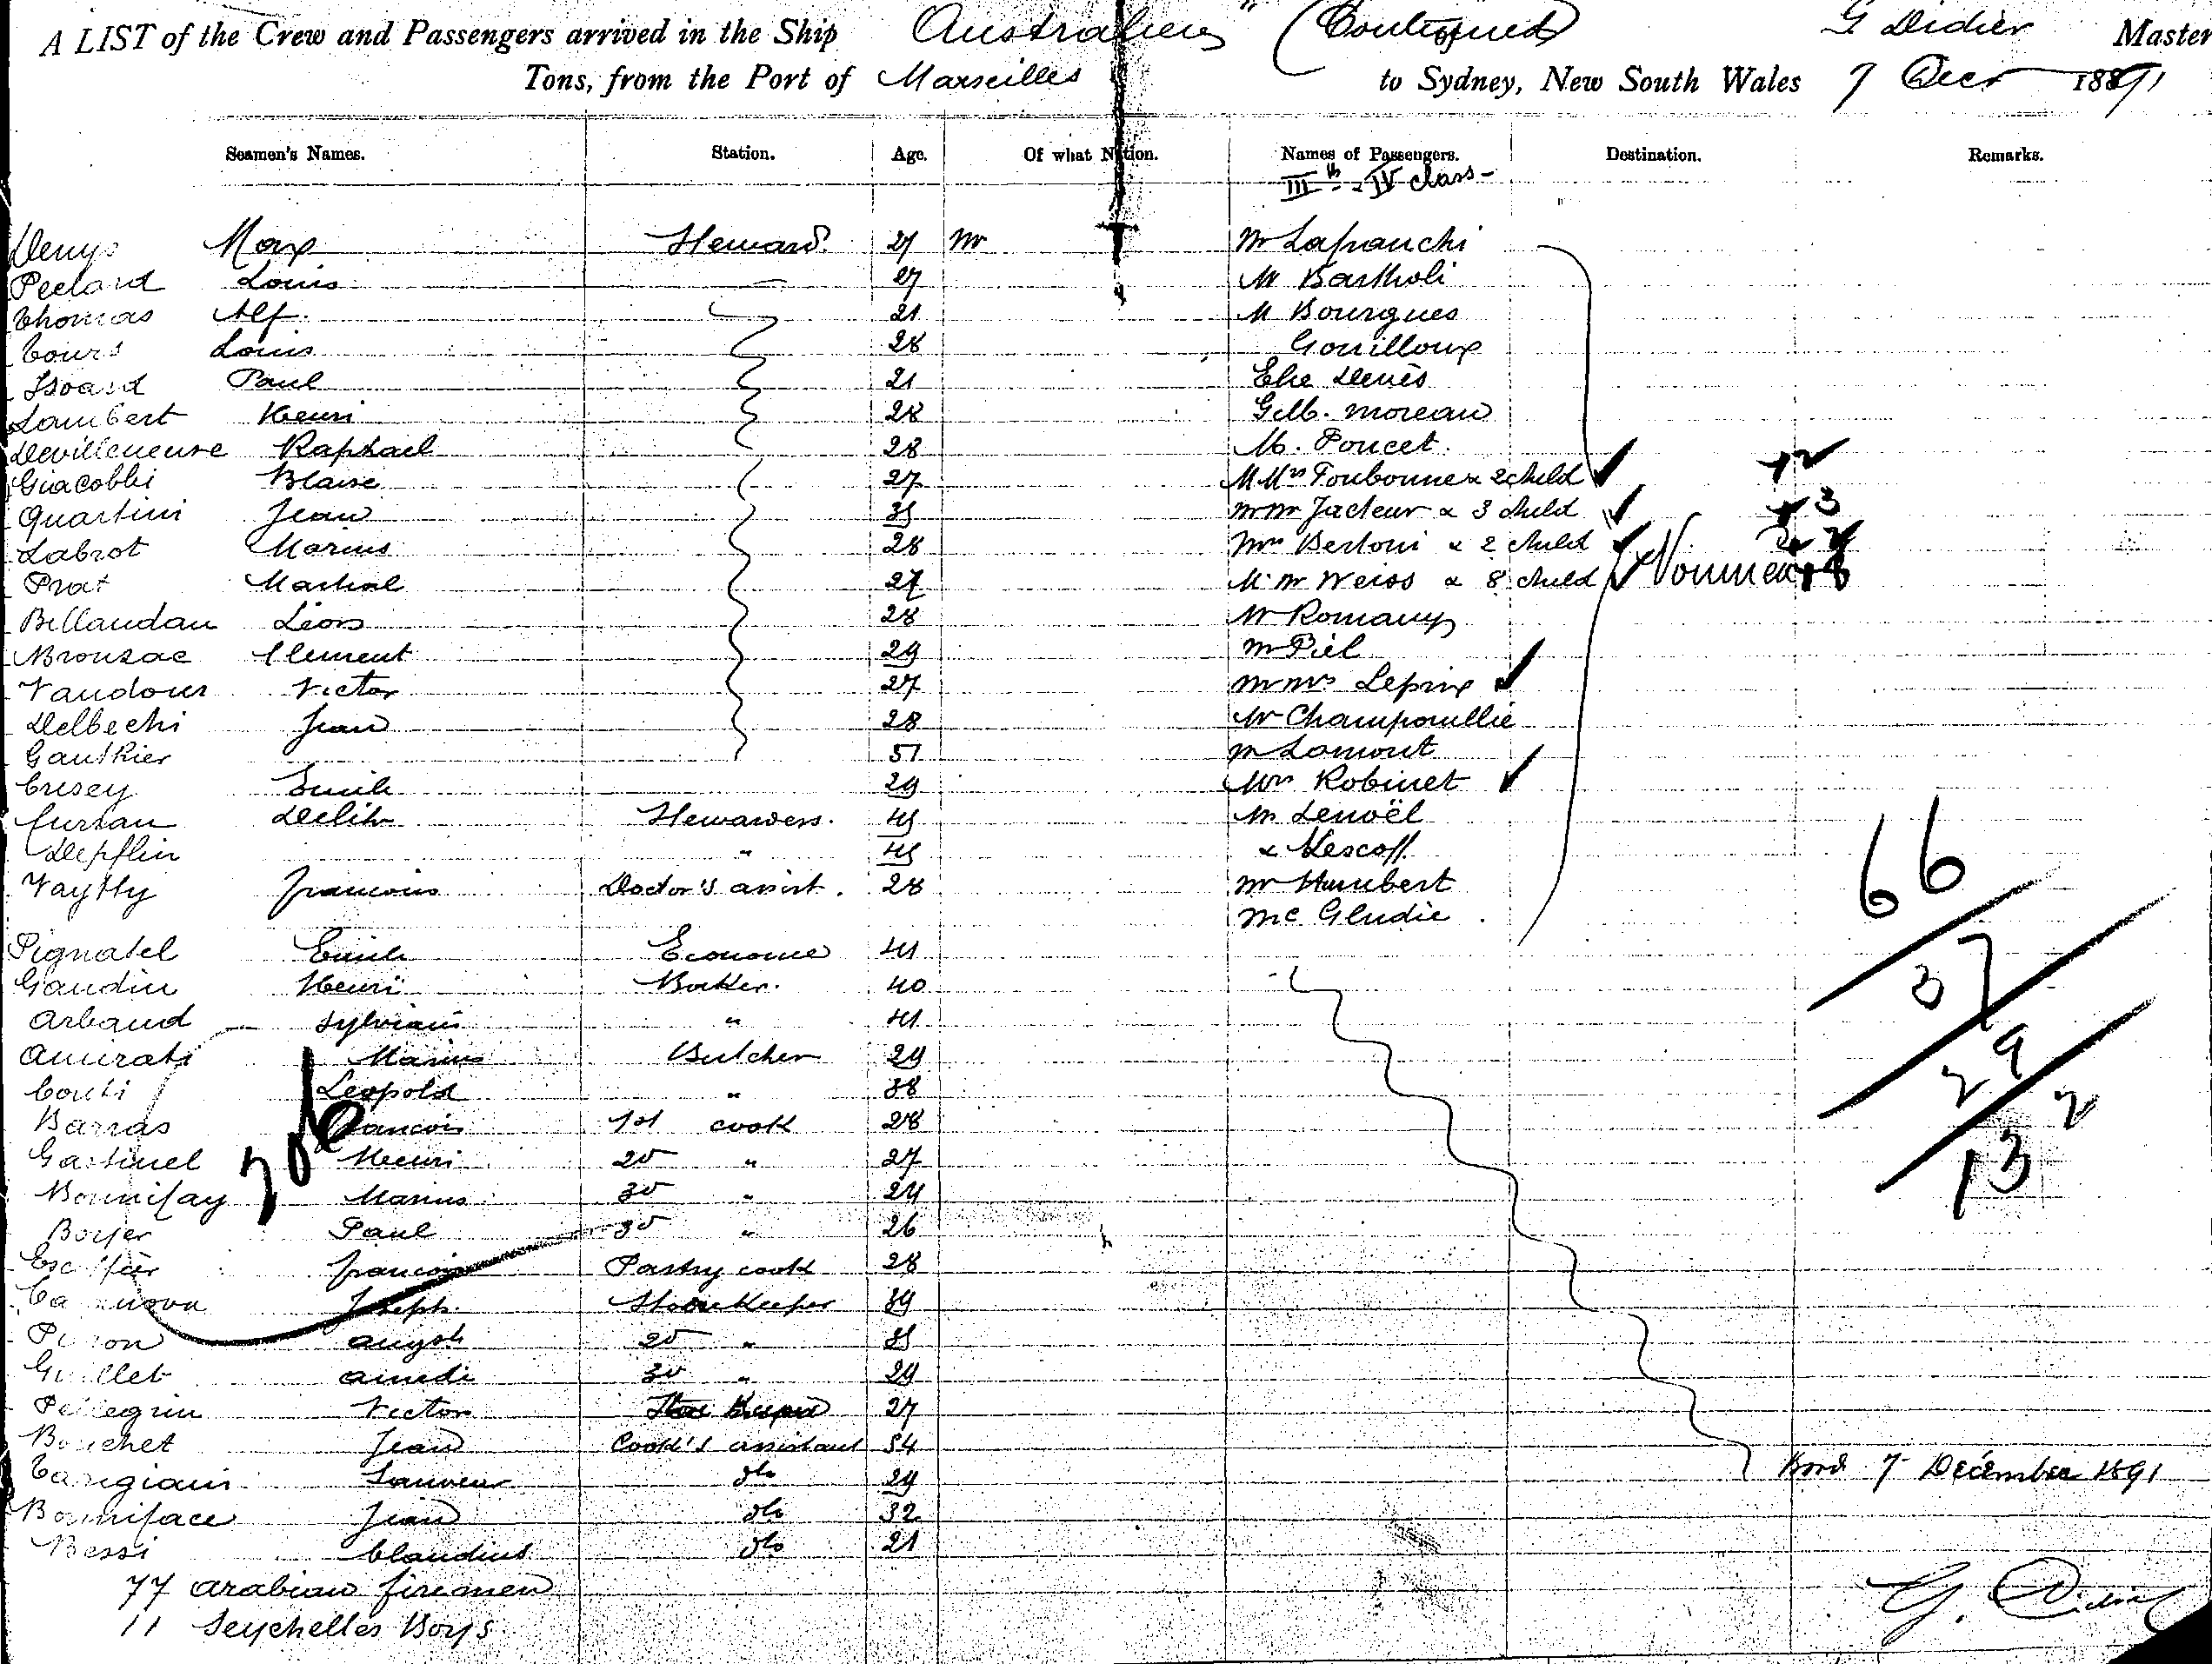 A LIST of the Crew and Passengers arrived in the Ship "Australien" (Continued) of G Didier Master
Tons, from the Port of Marseilles to Sydney, New South Wales 7 Decr 1891
Seamen's Names. Station. Age. Of what Nation. Names of Passengers. Destination. Remarks.
IIIth & IV class -
Denys Max Steward. 27 Mr Lafranchi
Louis 27 M Bartholi
Thomas Alf. 21 M Bourgues
Cours Louis 28 Gouilloux
Isoard Paul 21 Elie Denès
Lambert Henri 28 Gilb. Moreau
Devilleneuve Raphael 28 M. Poncet.
Giacobbi Blaise 27 M Mrs Foubonne & 2 child 2
Quartini Jean 35 M m Jacteur & 3 child 3
Labrot Marius 28 Mrs Bertoni & 2 child 2
Prat Martial 27 M. m Weiss & 8 child Noumea 8
Billaudau Léon 28 Mr Romany
Bronzac Clement 29 M Piel
Vaudour Victor 27 M Mrs Lepine
Delbechi Jean 28 Mr Champouillie
Gauthier 51 M Lamont
Crisey Emile 29 Mrs Robinet
45 M Lenoël
Stewardess. " 45 & Lescoff.
Francois Doctor's assist. 28 Mr Humbert
Mc Gludie.
Pignatel Emile Econome 41
Gaudin Henri Baker. 40
Arbaud Sylvain " 41
Amirati Marius Butcher 29
Conti Leopold " 38
Barras Francois 1st cook 28
Gastinel Henri 2d " 27
Bonnifay Marius 3d " 24
Boyer Paul 3d " 26
Escoffier Francois Pastry cook 28
Casanova Joseph Store Keeper 39
August 2d " 35
Guillet Amédi 3d " 29
Pellegrin Victor Store Keeper 27
Bouchet Jean Cook's assistant 34
Sauveur do 29
Bonniface Jean do 32
Bessi Claudius do 21
77 arabian firemen
11 Seychelles Boys
66
37
29
2
13
Bord 7 Décember 1891
G. Didier